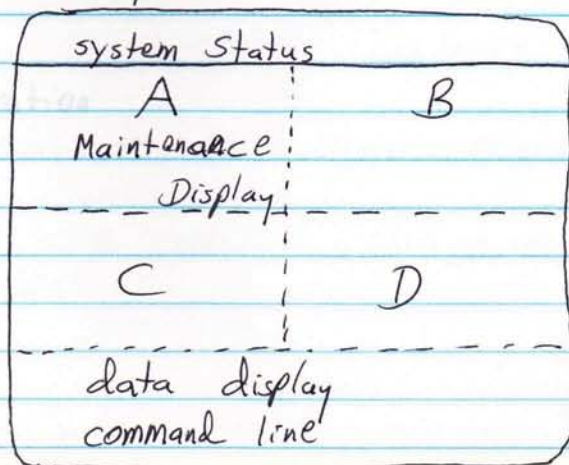 system Status
A B
Maintenance
Display
C D
data display
command line